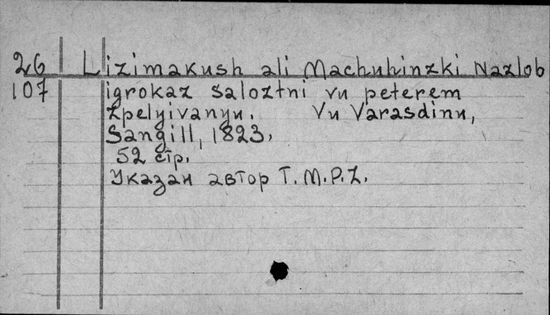 26 Lizimakush ali Machuhinzki Nazlob
107 igrokaz saloztni vu peterem
zpelyivanyu. Vu Varasdinu,
Sangill, 1823.
52 стр.
Указан автор T.M.P.Z.